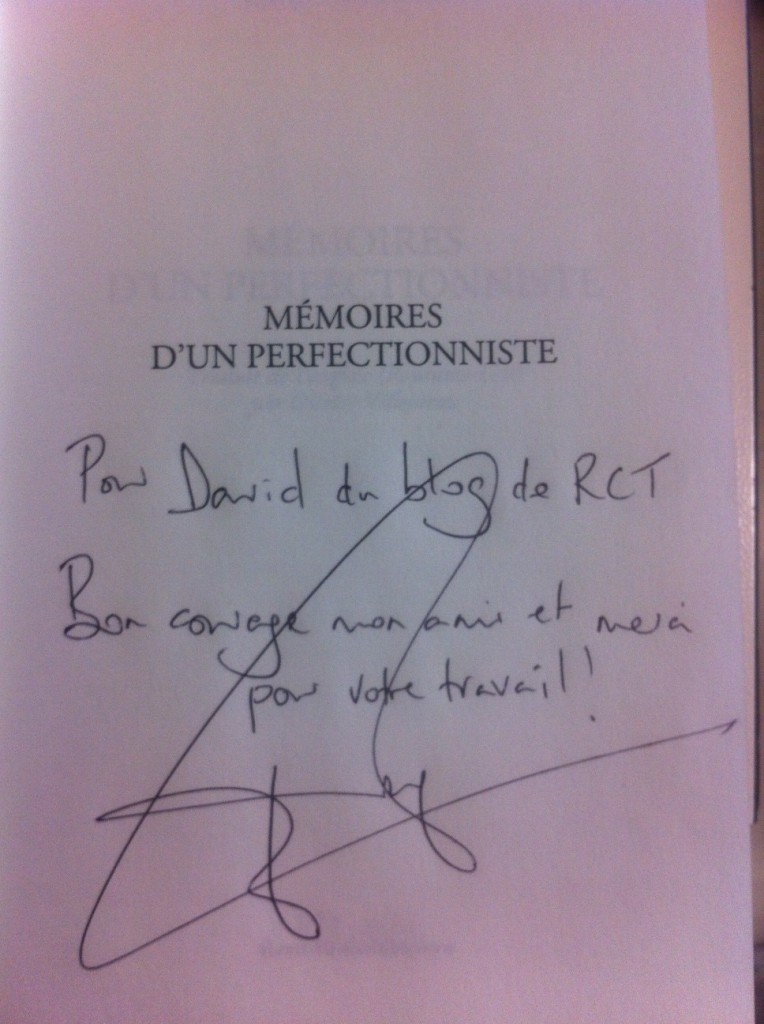 MÉMOIRES
D'UN PERFECTIONNISTE
Pour David du blog de RCT
Bon courage mon ami et merci
pour votre travail!